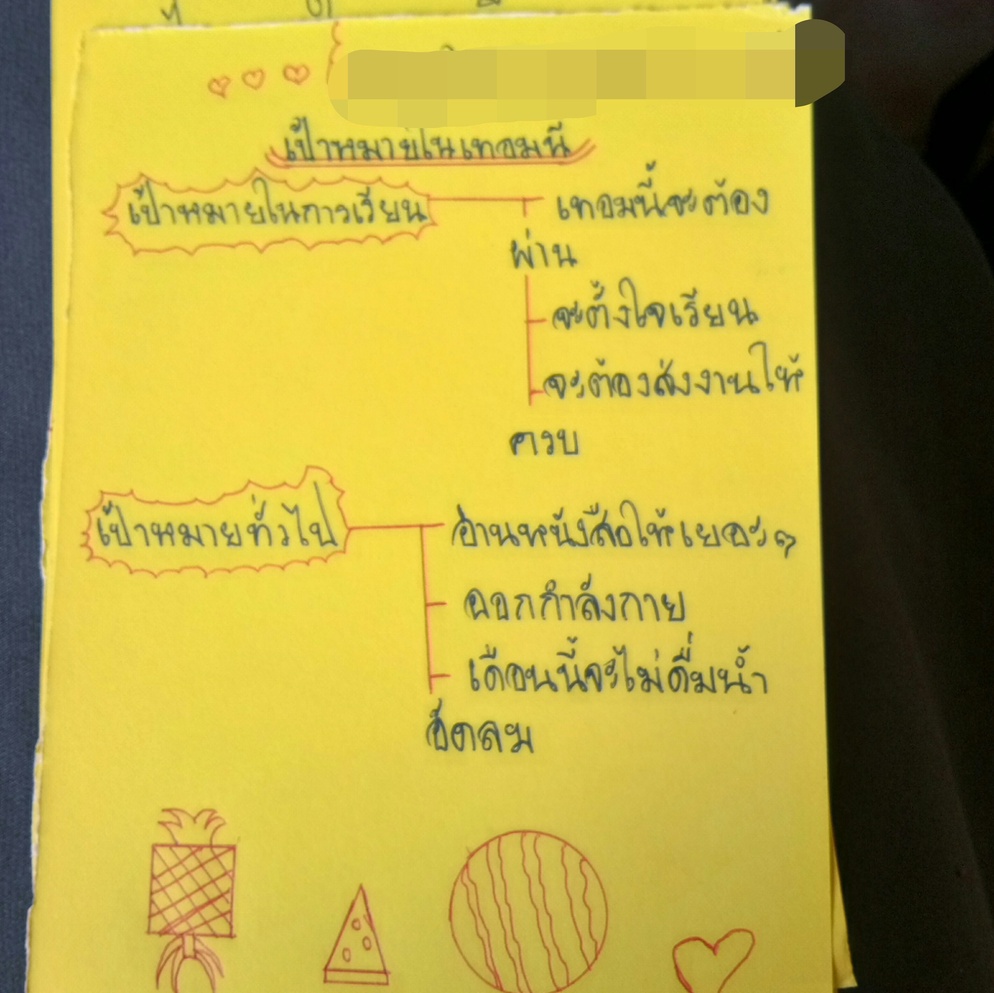 เป้าหมายในเทอมนี้
เป้าหมายในการเรียน เทอมนี้จะต้อง
ผ่าน
จะตั้งใจเรียน
จะต้องส่งงานให้
ครบ
เป้าหมายทั่วไป อ่านหนังสือให้เยอะๆ
ออกกำลังกาย
เดือนนี้จะไม่ดื่มน้ำ
อัดลม